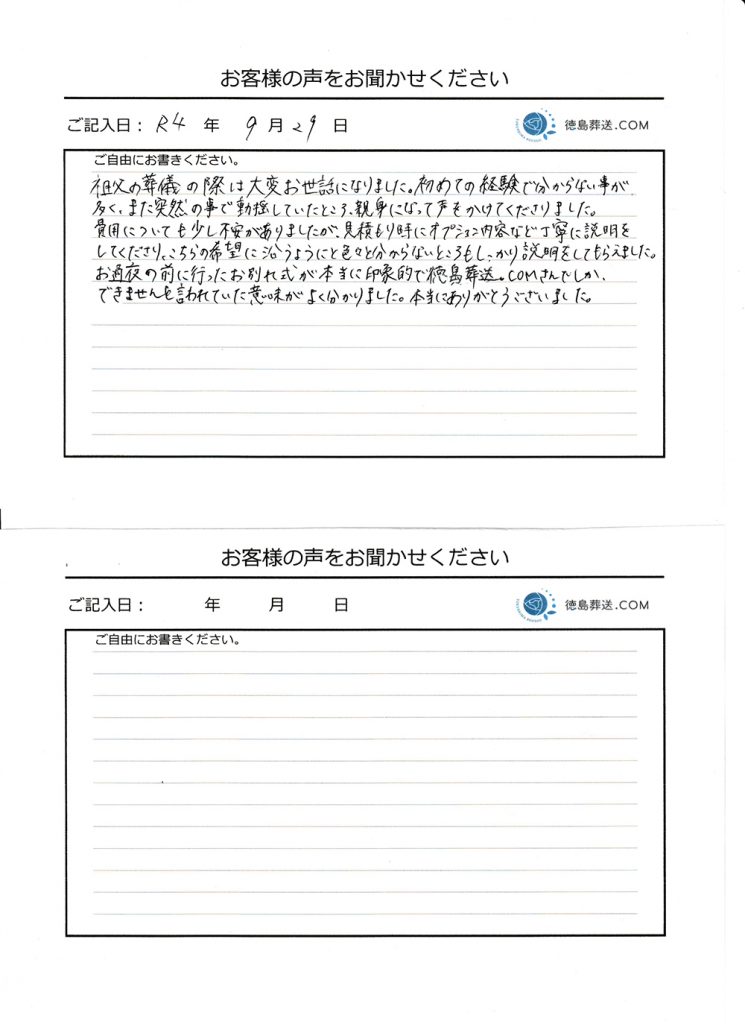 お客様の声をお聞かせください
ご記入日： R4 年 9月 29 日
徳島葬送.COM
ご自由にお書きください。
祖父の葬儀の際は大変お世話になりました。初めての経験で分からない事が
多く、また突然の事で動揺していたところ、親身になって声をかけてくださりました。
費用についても少し不安がありましたが、見積もり時にオプション内容など丁寧に説明を
してくださり、こちらの希望に沿うようにと色々と分からないところもしっかり説明をしてもらえました。
お通夜の前に行ったお別れ式が本当に印象的で徳島葬送。COMさんでしか、
できませんを言われていた意味がよく分かりました。本当にありがとうございました。
お客様の声をお聞かせください
ご記入日： 年 月 日
徳島葬送.COM
ご自由にお書きください。